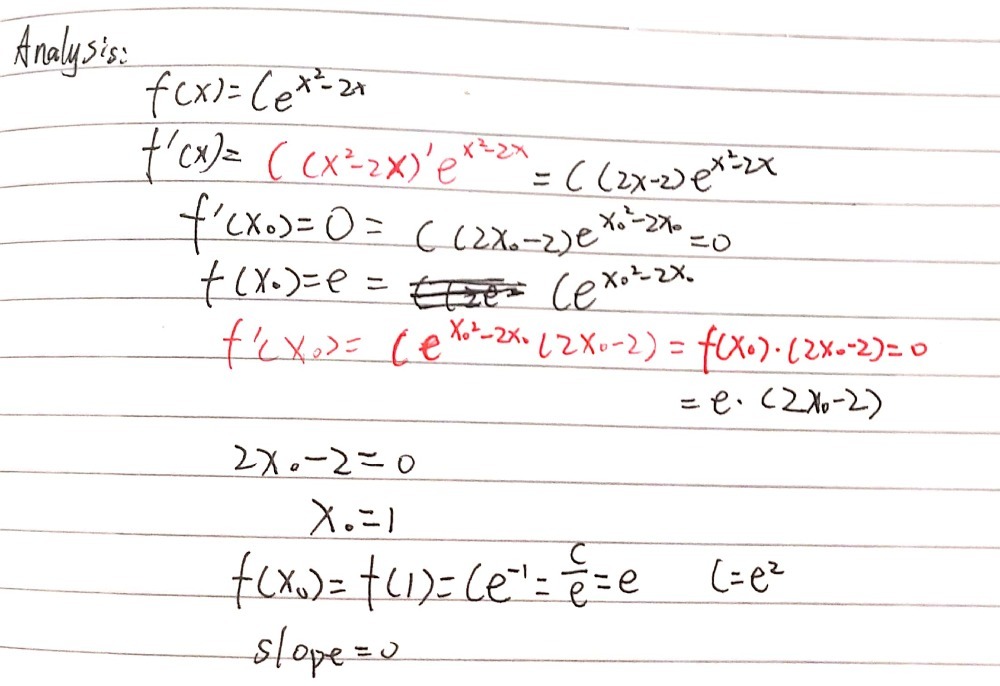 Analysis:
f(x)=Ce^{x²-2x}
f'(x)= C(x²-2x)'e^{x²-2x} = C(2x-2)e^{x²-2x}
f'(x₀)=0= C(2x₀-2)e^{x₀²-2x₀}=0
f(x₀)=e= Ce^{x₀²-2x₀}
f'(x₀)= Ce^{x₀²-2x₀}(2x₀-2)=f(x₀)·(2x₀-2)=0
=e·(2x₀-2)
2x₀-2=0
x₀=1
f(x₀)=f(1)=Ce⁻¹=C/e=e C=e²
slope=0